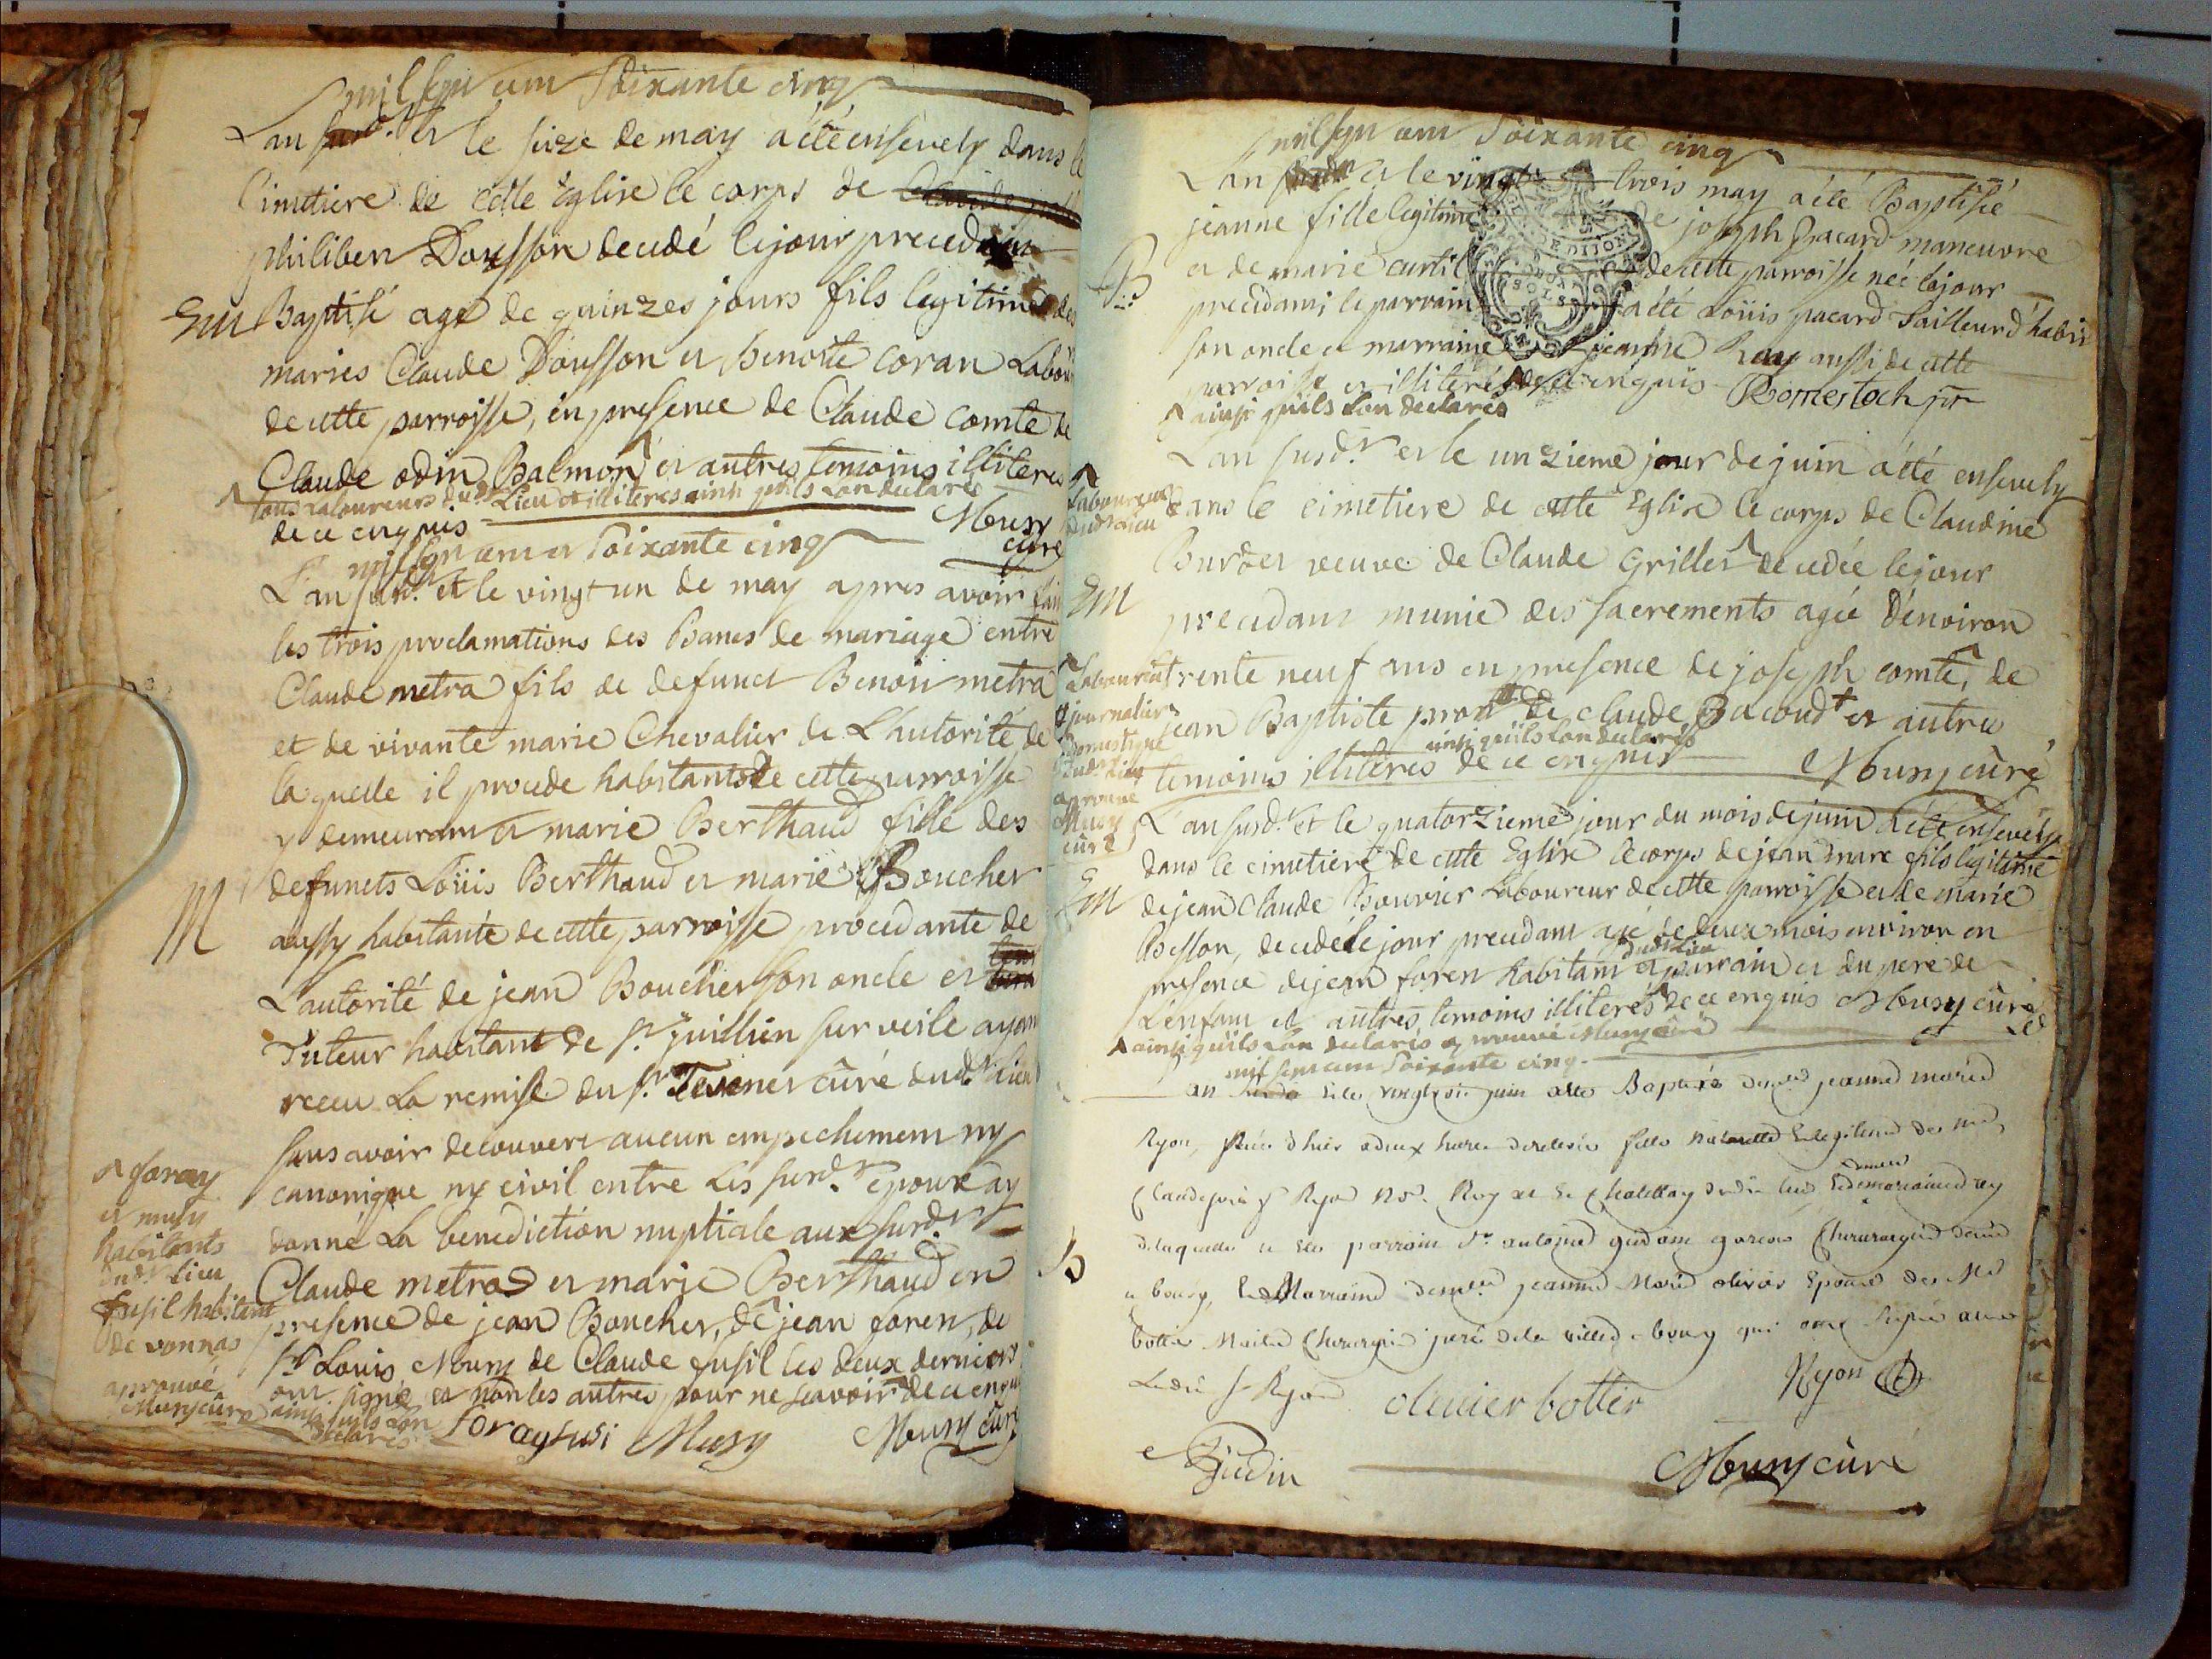 mil sept cent Soixante cinq
L'an susd.t et le seize de may a été ensevely dans le
Cimetiere de cette Eglise le corps de
philibert Dousson decedé le jour precedant
Em
Baptisé agé de quinzes jours fils legitime des
maries Claude Dousson et benoite coran Labour
de cette parroisse, en presence de Claude comte de
Claude odin Balmon et autres temoins illiteres
tous Laboureurs dud.t Lieu et illiteres ainsi quils Lon declares
de ce enquis Musy
curé
mil sept cent et Soixante cinq
L'an susd.t et le vingt un de may apres avoir fait
les trois proclamations des Bancs de mariage entre
Claude metra fils de defunct Benoit metra
et de vivante marie Chevalier de L'hautorité de
laquelle il procede habitants de cette parroisse
y demeurant et marie Berthaud fille des
M
defuncts Loüis Berthaud et marie Boucher
aussy habitante de cette parroisse procedante de
L'autorité de jean Boucher son oncle et
Tuteur habitant de s.t juillien sur veile ayant
receu La remise du s.r curé dud.t lieu
sans avoir decouvert aucun empechement ny
canonique ny civil entre Les susd.t epoux ay
donné La benediction nuptiale aux susd.ts
Claude metra et marie Berthaud en
presence de jean Boucher, de jean foren, de
s.r Louis Musy de Claude fusil les deux derniers
ont signé et non les autres pour ne scavoir de ce enquis
ainsi quils Lon
declares
foray
et musy
habitants
dud.t Lieu
fusil habitant
de vonnas
aprouvé
Musy curé
foray fusi Musy Musy curé
mil sept cent Soixante cinq
L'an susd.t et le vingt trois may a été Baptisée
jeanne fille legitime de joseph pacard manouvre
B
et de marie curtil de cette parroisse neé le jour
precedant; le parrain a été Loüis pacard Tailleur d'habit
son oncle et marraine jeanne Rey aussi de cette
parroisse et illiterés de ce enquis Romestoch ptr
ainsi quils Lon declarés
L'an susd.t et le unzieme jour de juin a été ensevely
dans le cimetiere de cette Eglise le corps de Claudine
laboureur
dud.t Lieu
Burdet veuve de Claude Grillet decedée le jour
Em
precedant munie des sacrements agée d'environ
Laboureur
trente neuf ans en presence de joseph comte, de
journalier
jean Baptiste de claude Bacoud et autres
domestique
dud.t Lieu
ainsi quils Lon declares
temoins illiteres de ce enquis Musy curé
aprouvé
Musy
curé
L'an susd.t et le quatorzieme jour du mois de juin a été ensevely
dans le cimetiere de cette Eglise le corps de jean marc fils legitime
Em
de jean Claude Bouvier Laboureur de cette parroisse et de marie
Besson, decedé le jour precedant agé de deux mois environ en
dud.t Lieu
presence de jean foren habitant et parrain et du pere de
L'enfant et autres temoins illiterés de ce enquis Musy curé
ainsi quils Lon declarés aprouvé Musy curé
mil sept cent Soixante cinq
L'an et le vingt six juin a été Baptisée dem.lle jeanne marie
Ryon, née d'hier a deux heures fille naturelle et legitime de
B
delaquelle a été parrain s.r antoine garcon Chirurgien
a bourg, et Marraine dem.lle jeanne Marie olivier Epouse de M.e
bottier Maitre Chirurgien juré de la ville de bourg qui ont signé avec
Ledit s.r Ryon olivier bottier Ryon
Gudin
Musy curé